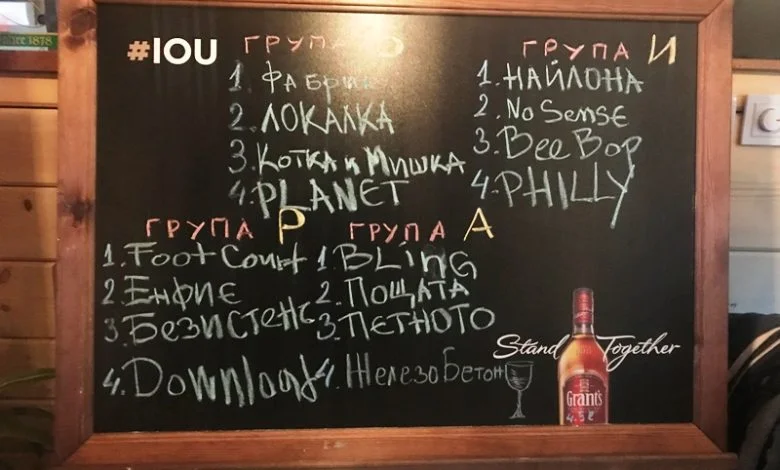 #IOU
ГРУПА О
1. Фабрик
2. ЛОКАЛКА
3. Котка и Мишка
4. PLANET
ГРУПА И
1. НАЙЛОНА
2. No SensE
3. Bee Bop
4. PHILLY
ГРУПА Р
1. Foot Court
2. Енфиє
3. Безистенс
4. Download
ГРУПА А
1. BLiNG
2. Пощата
3. ПЕТНОТО
4. Железо Бетон
Stand Together
Grant's